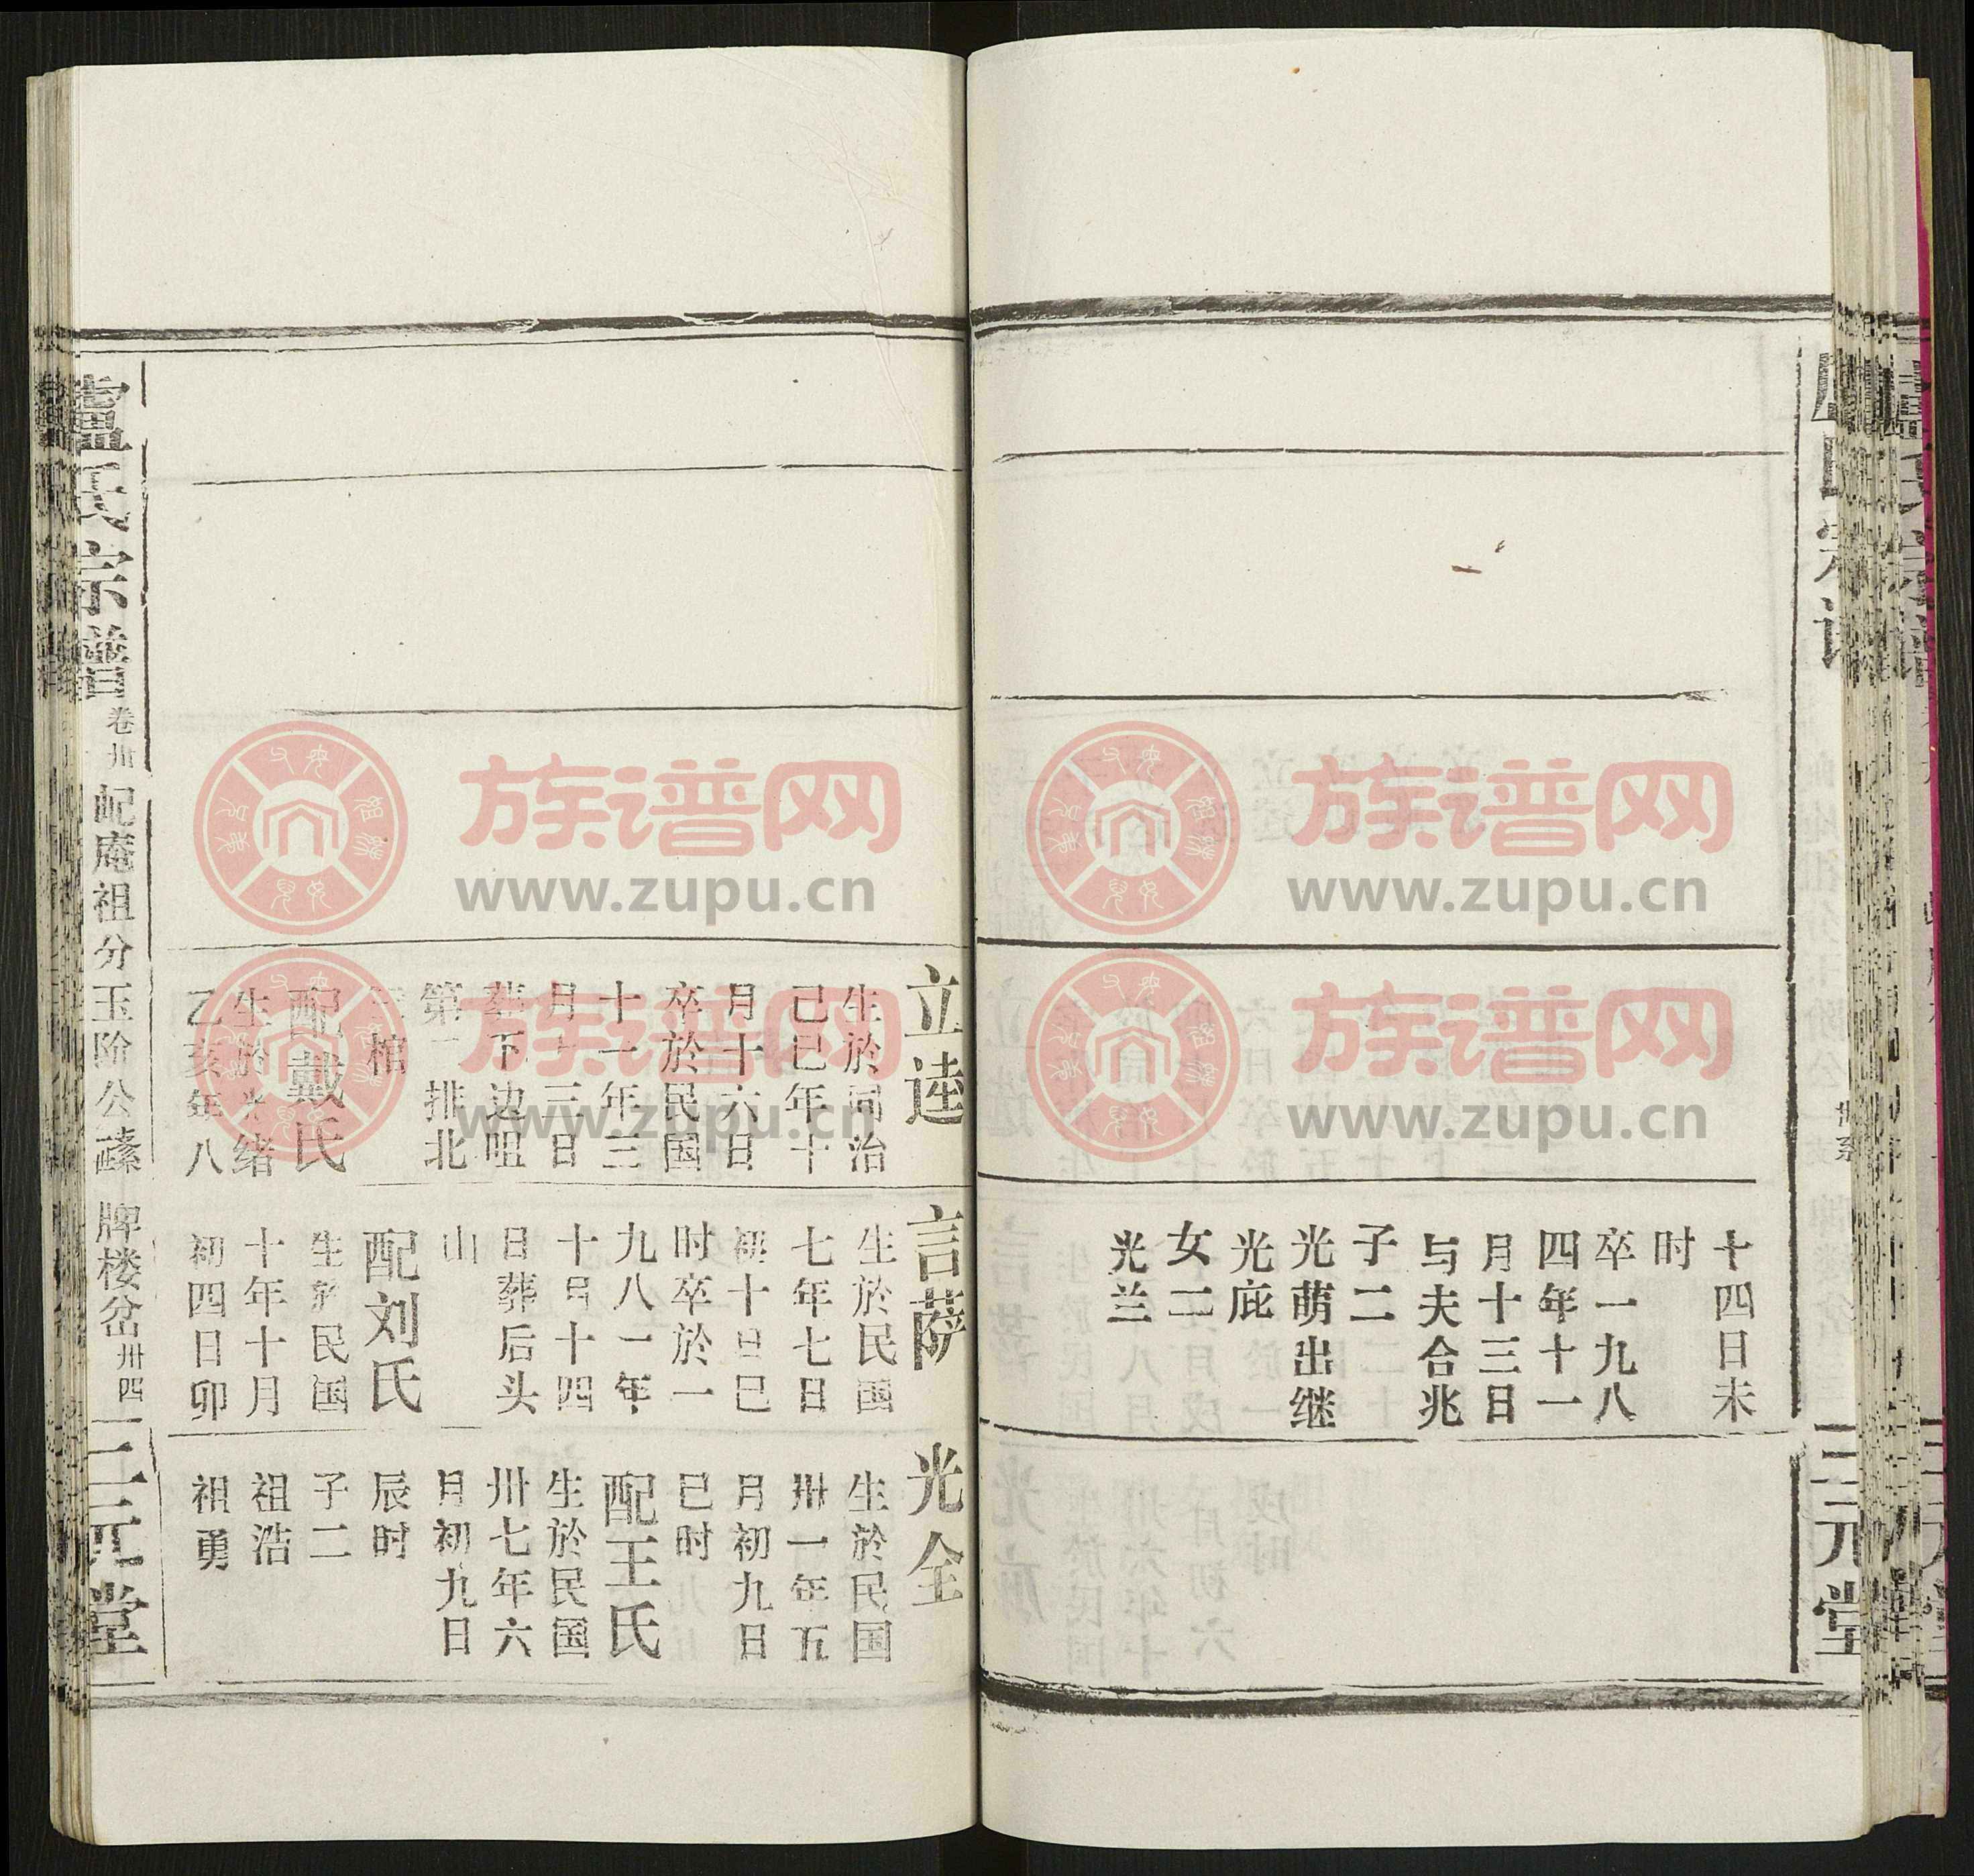 十四日未
时
卒一九八
四年十一
月十三日
与夫合兆
子二
光萌出继
光庇
女二
光兰
三元堂
立逵
生於同治
己巳年十
月十六日
卒於民国
十一年三
月十三日
葬下边咀
第一排北
棺
配戴氏
生於光绪
乙亥年八
言萨
生於民国
七年七日
初十日巳
时卒於一
九八一年
十月十四
日葬后头
山
配刘氏
生於民国
十年十月
初四日卯
光全
生於民国
卅一年五
月初九日
巳时
配王氏
生於民国
卅七年六
月初九日
辰时
子二
祖浩
祖勇
盧氏宗譜
卷卅
屺庵祖分玉阶公
牌楼岔
卅四
三元堂
族谱网
www.zupu.cn
族谱网
www.zupu.cn
族谱网
www.zupu.cn
族谱网
www.zupu.cn